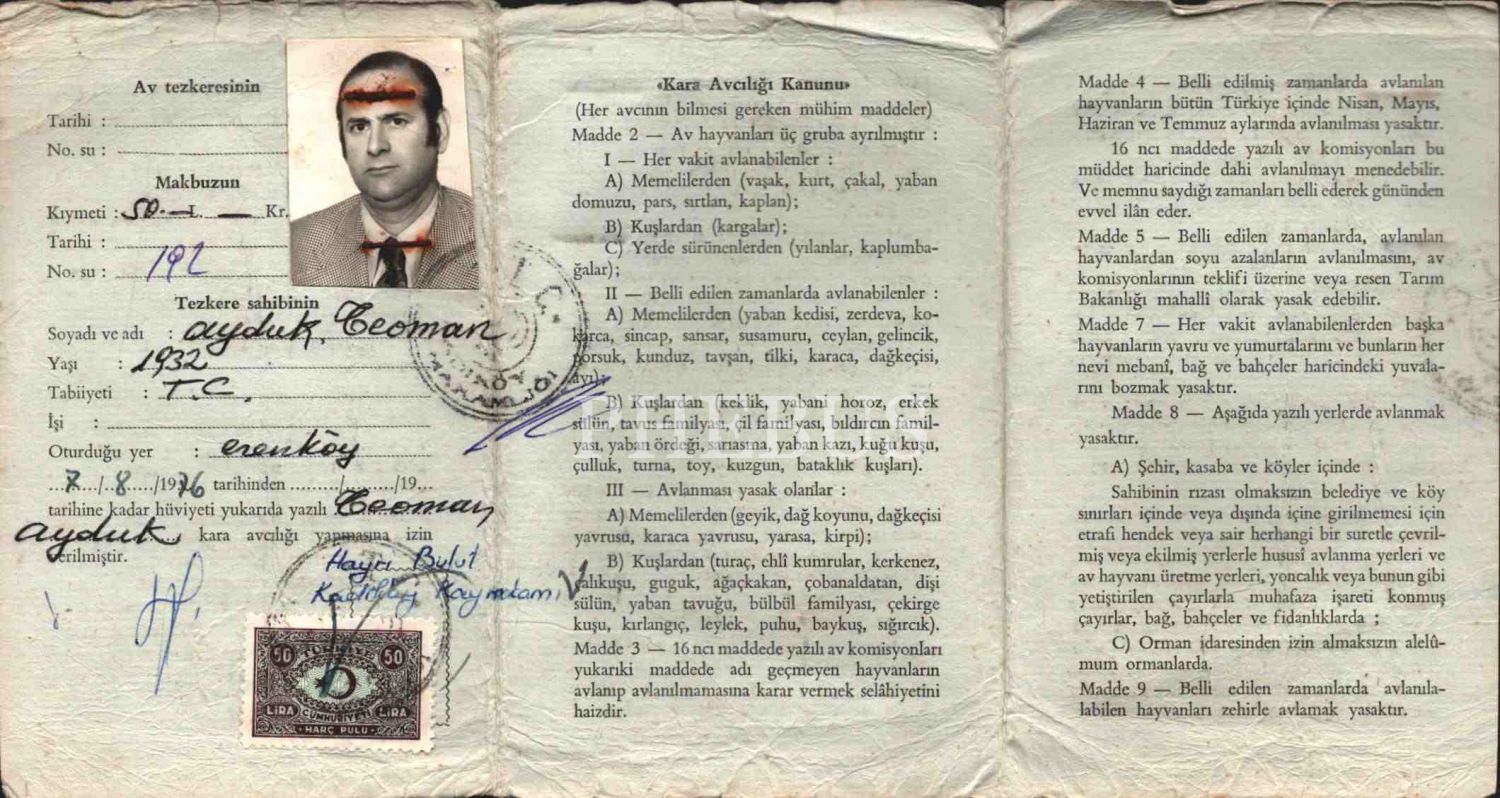 Av tezkeresinin
Tarihi :
No. su :
Makbuzun
Kıymeti : 50.— L. — Kr.
Tarihi :
No. su : 192
Tezkere sahibinin
Soyadı ve adı : ayduk, Teoman
Yaşı : 1932
Tabiiyeti : T.C.
İşi :
Oturduğu yer : erenköy
7/8/1976 tarihinden ......../......../19...
tarihine kadar hüviyeti yukarıda yazılı Teoman
ayduk kara avcılığı yapmasına izin
verilmiştir.
Bulut
Kadıköy Kaymakamı V
TÜRKİYE
50 50
LİRA CUMHURİYETİ LİRA
HARÇ PULU
«Kara Avcılığı Kanunu»
(Her avcının bilmesi gereken mühim maddeler)
Madde 2 — Av hayvanları üç gruba ayrılmıştır :
I — Her vakit avlanabilenler :
A) Memelilerden (vaşak, kurt, çakal, yaban
domuzu, pars, sırtlan, kaplan);
B) Kuşlardan (kargalar);
C) Yerde sürünenlerden (yılanlar, kaplumba-
ğalar);
II — Belli edilen zamanlarda avlanabilenler :
A) Memelilerden (yaban kedisi, zerdeva, ko-
karca, sincap, sansar, susamuru, ceylan, gelincik,
porsuk, kunduz, tavşan, tilki, karaca, dağkeçisi,
ayı);
B) Kuşlardan (keklik, yabani horoz, erkek
sülün, tavus familyası, çil familyası, bıldırcın famil-
yası, yaban ördeği, sarıasma, yaban kazı, kuğu kuşu,
çulluk, turna, toy, kuzgun, bataklık kuşları).
III — Avlanması yasak olanlar :
A) Memelilerden (geyik, dağ koyunu, dağkeçisi
yavrusu, karaca yavrusu, yarasa, kirpi);
B) Kuşlardan (turaç, ehlî kumrular, kerkenez,
çalıkuşu, guguk, ağaçkakan, çobanaldatan, dişi
sülün, yaban tavuğu, bülbül familyası, çekirge
kuşu, kırlangıç, leylek, puhu, baykuş, sığırcık).
Madde 3 — 16 ncı maddede yazılı av komisyonları
yukarıki maddede adı geçmeyen hayvanların
avlanıp avlanılmamasına karar vermek selâhiyetini
haizdir.
Madde 4 — Belli edilmiş zamanlarda avlanılan
hayvanların bütün Türkiye içinde Nisan, Mayıs,
Haziran ve Temmuz aylarında avlanılması yasaktır.
16 ncı maddede yazılı av komisyonları bu
müddet haricinde dahi avlanılmayı menedebilir.
Ve memnu saydığı zamanları belli ederek gününden
evvel ilân eder.
Madde 5 — Belli edilen zamanlarda, avlanılan
hayvanlardan soyu azalanların avlanılmasını, av
komisyonlarının teklifi üzerine veya resen Tarım
Bakanlığı mahallî olarak yasak edebilir.
Madde 7 — Her vakit avlanabilenlerden başka
hayvanların yavru ve yumurtalarını ve bunların her
nevi mebanî, bağ ve bahçeler haricindeki yuvala-
rını bozmak yasaktır.
Madde 8 — Aşağıda yazılı yerlerde avlanmak
yasaktır.
A) Şehir, kasaba ve köyler içinde :
Sahibinin rızası olmaksızın belediye ve köy
sınırları içinde veya dışında içine girilmemesi için
etrafi hendek veya sair herhangi bir suretle çevril-
miş veya ekilmiş yerlerle hususî avlanma yerleri ve
av hayvanı üretme yerleri, yoncalık veya bunun gibi
yetiştirilen çayırlarla muhafaza işareti konmuş
çayırlar, bağ, bahçeler ve fidanlıklarda ;
C) Orman idaresinden izin almaksızın alelû-
mum ormanlarda.
Madde 9 — Belli edilen zamanlarda avlanıla-
labilen hayvanları zehirle avlamak yasaktır.